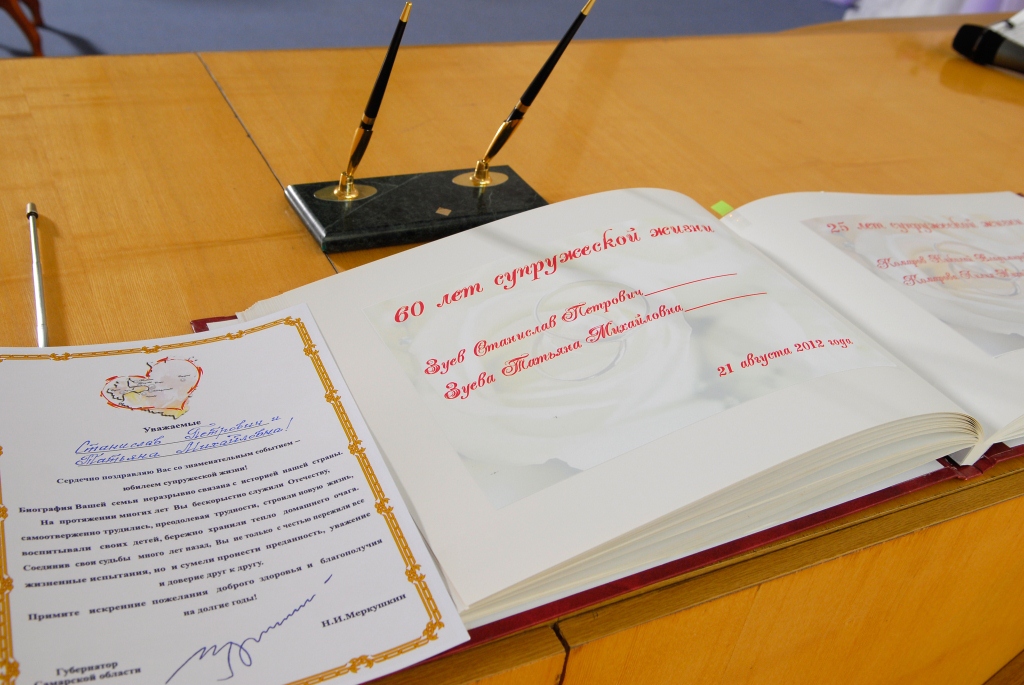 60 лет супружеской жизни
Зуев Станислав Петрович
Зуева Татьяна Михайловна
21 августа 2012 года
25 лет супружеской жизни
Уважаемые
Станислав Петрович и
Татьяна Михайловна!
Сердечно поздравляю Вас со знаменательным событием –
юбилеем супружеской жизни!
Биография Вашей семьи неразрывно связана с историей нашей страны.
На протяжении многих лет Вы бескорыстно служили Отечеству,
самоотверженно трудились, преодолевая трудности, строили новую жизнь,
воспитывали своих детей, бережно хранили тепло домашнего очага.
Соединив свои судьбы много лет назад, Вы не только с честью пережили все
жизненные испытания, но и сумели пронести преданность, уважение
и доверие друг к другу.
Примите искренние пожелания доброго здоровья и благополучия
на долгие годы!
Губернатор
Самарской области
Н.И.Меркушкин